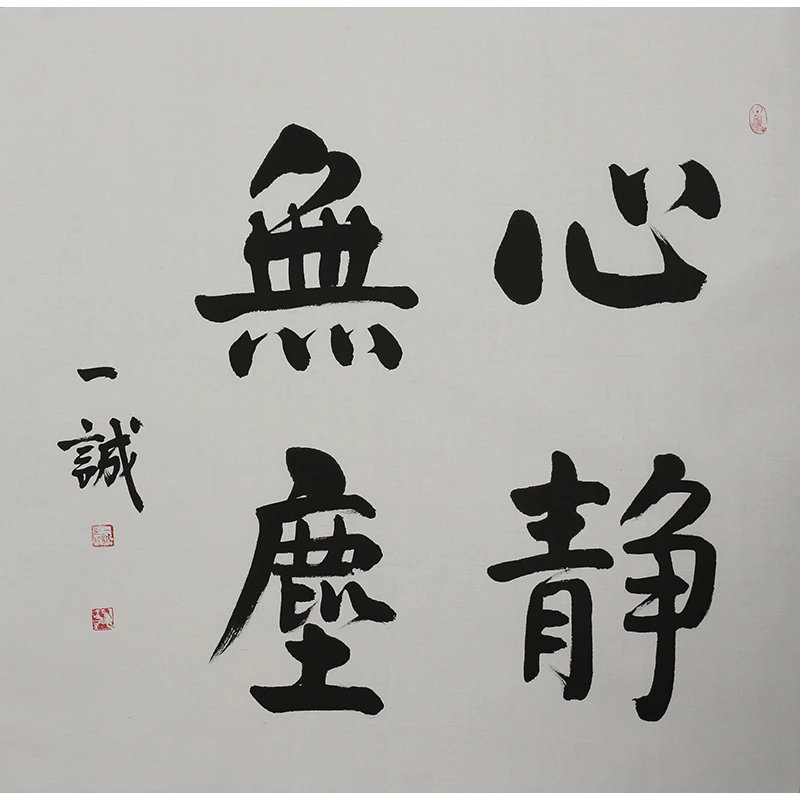 心静
無塵
一誠